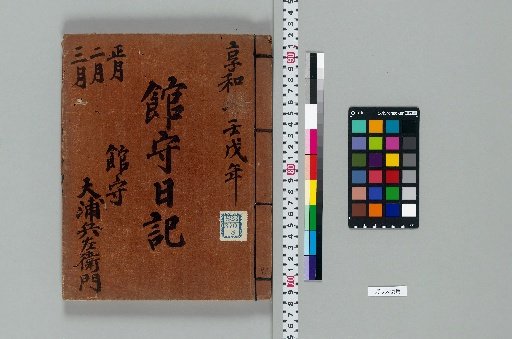 享和二壬戌年
館守日記
正月
二月
三月
館守
大浦兵左衛門